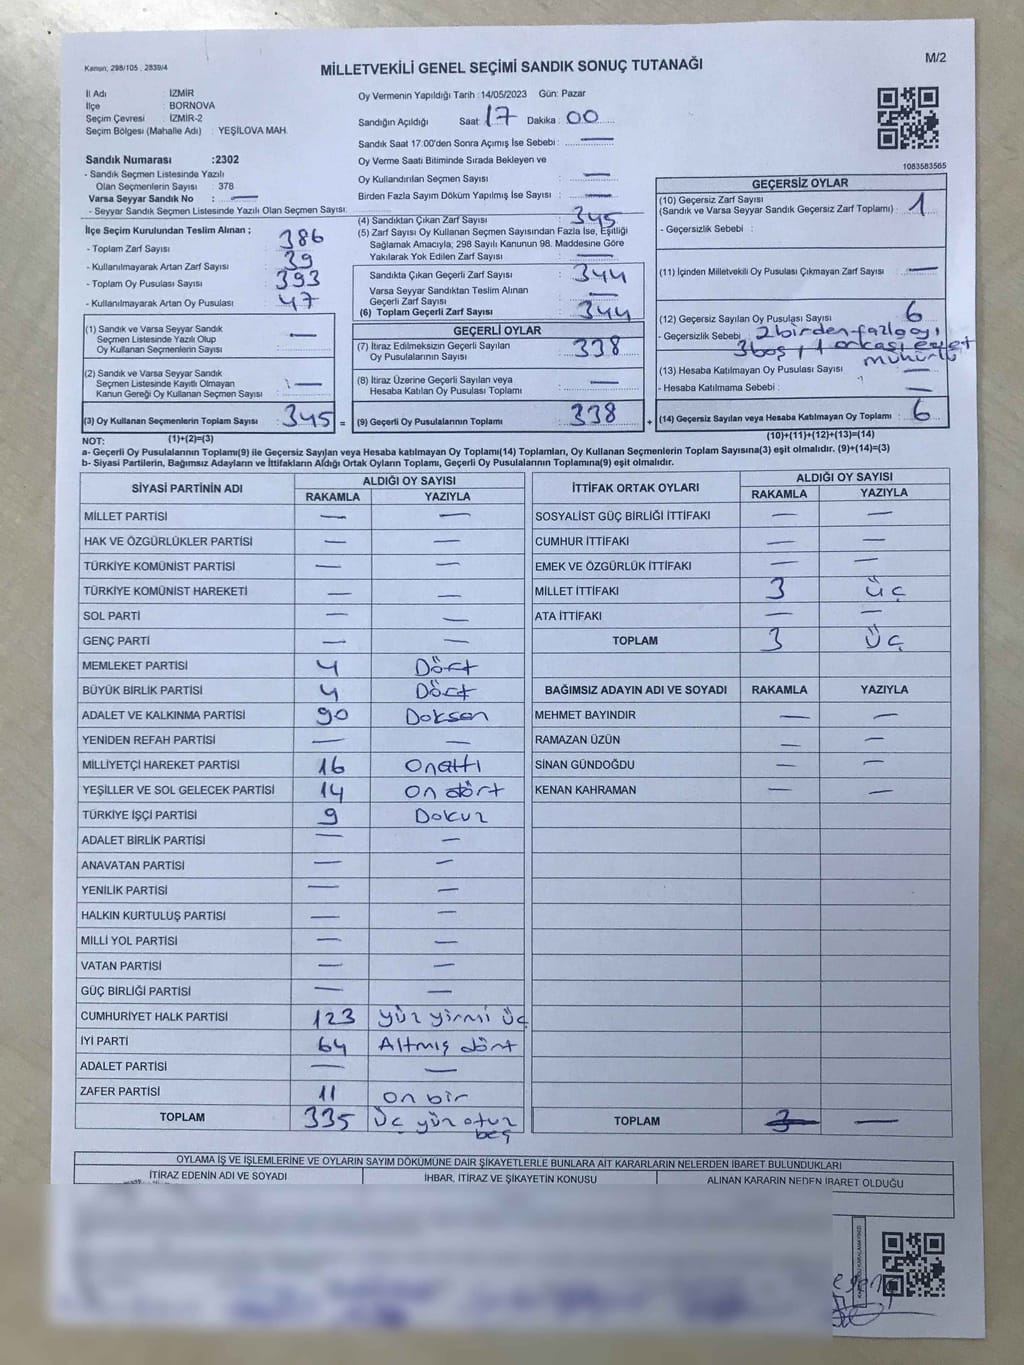 Kanun; 298/105 , 2839/4
M/2
MİLLETVEKİLİ GENEL SEÇİMİ SANDIK SONUÇ TUTANAĞI
İl Adı : İZMİR
İlçe : BORNOVA
Seçim Çevresi : İZMİR-2
Seçim Bölgesi (Mahalle Adı) : YEŞİLOVA MAH.
Sandık Numarası :2302
- Sandık Seçmen Listesinde Yazılı
Olan Seçmenlerin Sayısı : 378
Varsa Seyyar Sandık No : —
- Seyyar Sandık Seçmen Listesinde Yazılı Olan Seçmen Sayısı:
İlçe Seçim Kurulundan Teslim Alınan ;
- Toplam Zarf Sayısı : 386
- Kullanılmayarak Artan Zarf Sayısı : 39
- Toplam Oy Pusulası Sayısı : 393
- Kullanılmayarak Artan Oy Pusulası : 47
(1) Sandık ve Varsa Seyyar Sandık
Seçmen Listesinde Yazılı Olup
Oy Kullanan Seçmenlerin Sayısı : —
(2) Sandık ve Varsa Seyyar Sandık
Seçmen Listesinde Kayıtlı Olmayan
Kanun Gereği Oy Kullanan Seçmen Sayısı : —
(3) Oy Kullanan Seçmenlerin Toplam Sayısı : 345 =
Oy Vermenin Yapıldığı Tarih :14/05/2023 Gün: Pazar
Sandığın Açıldığı Saat: 17 Dakika : 00
Sandık Saat 17.00'den Sonra Açımış İse Sebebi : —
Oy Verme Saati Bitiminde Sırada Bekleyen ve
Oy Kullandırılan Seçmen Sayısı : —
Birden Fazla Sayım Döküm Yapılmış İse Sayısı : —
(4) Sandıktan Çıkan Zarf Sayısı : 345
(5) Zarf Sayısı Oy Kullanan Seçmen Sayısından Fazla İse, Eşitliği
Sağlamak Amacıyla; 298 Sayılı Kanunun 98. Maddesine Göre
Yakılarak Yok Edilen Zarf Sayısı : —
Sandıkta Çıkan Geçerli Zarf Sayısı : 344
Varsa Seyyar Sandıktan Teslim Alınan
Geçerli Zarf Sayısı : —
(6) Toplam Geçerli Zarf Sayısı : 344
GEÇERLİ OYLAR
(7) İtiraz Edilmeksizin Geçerli Sayılan
Oy Pusulalarının Sayısı : 338
(8) İtiraz Üzerine Geçerli Sayılan veya
Hesaba Katılan Oy Pusulası Toplamı : —
(9) Geçerli Oy Pusulalarının Toplamı : 338 +
1083583565
GEÇERSİZ OYLAR
(10) Geçersiz Zarf Sayısı
(Sandık ve Varsa Seyyar Sandık Geçersiz Zarf Toplamı) : 1
- Geçersizlik Sebebi :
(11) İçinden Milletvekili Oy Pusulası Çıkmayan Zarf Sayısı : —
(12) Geçersiz Sayılan Oy Pusulası Sayısı : 6
- Geçersizlik Sebebi : 2 birden fazla oy,
3 boş, 1 arkası evet
mühürlü
(13) Hesaba Katılmayan Oy Pusulası Sayısı : —
- Hesaba Katılmama Sebebi : —
(14) Geçersiz Sayılan veya Hesaba Katılmayan Oy Toplamı : 6
NOT: (1)+(2)=(3)
(10)+(11)+(12)+(13)=(14)
a- Geçerli Oy Pusulasının Toplamı(9) ile Geçersiz Sayılan veya Hesaba katılmayan Oy Toplamı(14) Toplamları, Oy Kullanan Seçmenlerin Toplam Sayısına(3) eşit olmalıdır. (9)+(14)=(3)
b- Siyasi Partilerin, Bağımsız Adayların ve İttifakların Aldığı Ortak Oyların Toplamı, Geçerli Oy Pusulalarının Toplamına(9) eşit olmalıdır.
SİYASİ PARTİNİN ADI ALDIĞI OY SAYISI
RAKAMLA YAZIYLA
MİLLET PARTİSİ — —
HAK VE ÖZGÜRLÜKLER PARTİSİ — —
TÜRKİYE KOMÜNİST PARTİSİ — —
TÜRKİYE KOMÜNİST HAREKETİ — —
SOL PARTİ — —
GENÇ PARTİ — —
MEMLEKET PARTİSİ 4 Dört
BÜYÜK BİRLİK PARTİSİ 4 Dört
ADALET VE KALKINMA PARTİSİ 90 Doksan
YENİDEN REFAH PARTİSİ — —
MİLLİYETÇİ HAREKET PARTİSİ 16 Onaltı
YEŞİLLER VE SOL GELECEK PARTİSİ 14 On dört
TÜRKİYE İŞÇİ PARTİSİ 9 Dokuz
ADALET BİRLİK PARTİSİ — —
ANAVATAN PARTİSİ — —
YENİLİK PARTİSİ — —
HALKIN KURTULUŞ PARTİSİ — —
MİLLİ YOL PARTİSİ — —
VATAN PARTİSİ — —
GÜÇ BİRLİĞİ PARTİSİ — —
CUMHURİYET HALK PARTİSİ 123 yüz yirmi üç
İYİ PARTİ 64 Altmış dört
ADALET PARTİSİ — —
ZAFER PARTİSİ 11 on bir
TOPLAM 335 üç yüz otuz
beş
İTTİFAK ORTAK OYLARI ALDIĞI OY SAYISI
RAKAMLA YAZIYLA
SOSYALİST GÜÇ BİRLİĞİ İTTİFAKI — —
CUMHUR İTTİFAKI — —
EMEK VE ÖZGÜRLÜK İTTİFAKI — —
MİLLET İTTİFAKI 3 üç
ATA İTTİFAKI — —
TOPLAM 3 üç
BAĞIMSIZ ADAYIN ADI VE SOYADI RAKAMLA YAZIYLA
MEHMET BAYINDIR — —
RAMAZAN ÜZÜN — —
SİNAN GÜNDOĞDU — —
KENAN KAHRAMAN — —
TOPLAM 3 —
OYLAMA İŞ VE İŞLEMLERİNE VE OYLARIN SAYIM DÖKÜMÜNE DAİR ŞİKAYETLERLE BUNLARA AİT KARARLARIN NELERDEN İBARET BULUNDUKLARI
İTİRAZ EDENİN ADI VE SOYADI İHBAR, İTİRAZ VE ŞİKAYETİN KONUSU ALINAN KARARIN NEDEN İBARET OLDUĞU